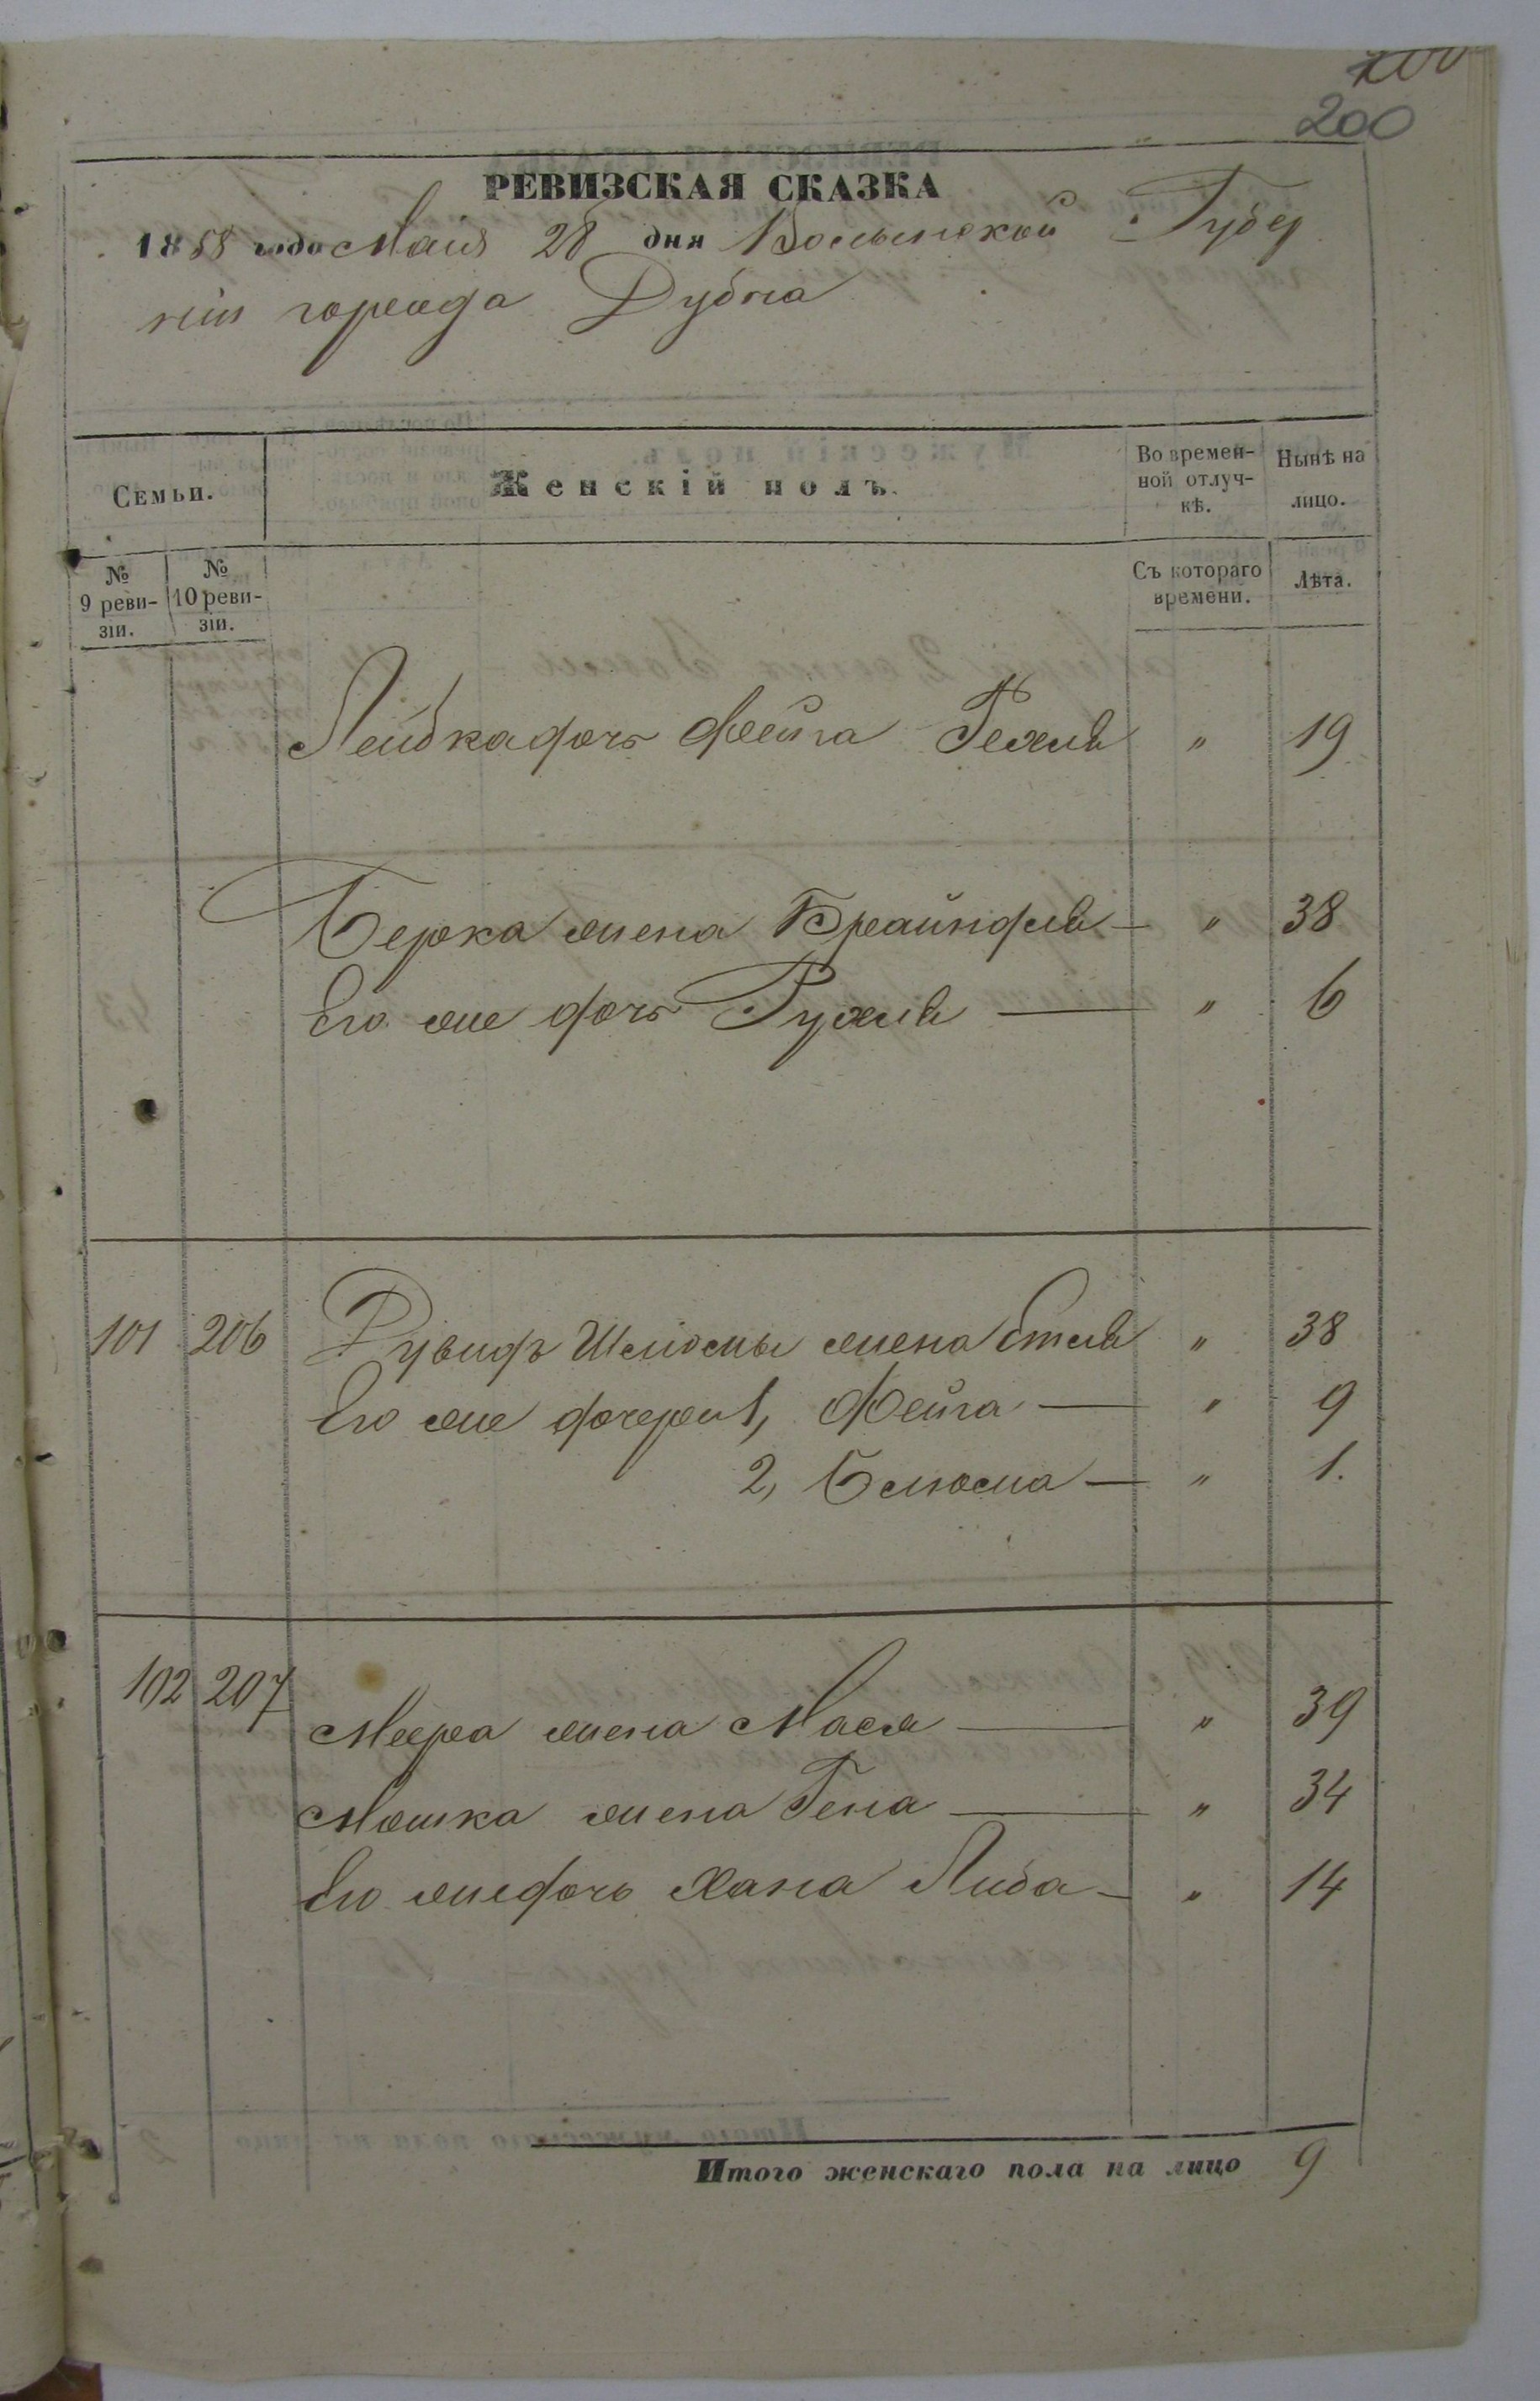 200
200
РЕВИЗСКАЯ СКАЗКА
1858 года Маія 28 дня Волынской Губер
ніи города Дубна
Семьи.
Женскій полъ.
Во времен-
ной отлуч-
кѣ.
Нынѣ на
лицо.
№
9 реви-
зіи.
№
10 реви-
зіи.
Съ котораго
времени.
Лѣта.
Лейбка дочь Фейга Рехля " 19
Берка жена Брайндля — " 38
Его же дочь Рухля — " 6
101 206 Рувидъ Шлiомы жена Етля " 38
Его же дочери 1, Фейга — " 9
2, Блюма — " 1.
102 207
Меера жена Мася — " 39
Мошка жена Гена — " 34
Его же дочь Хана Либа — " 14
Итого женскаго пола на лицо 9